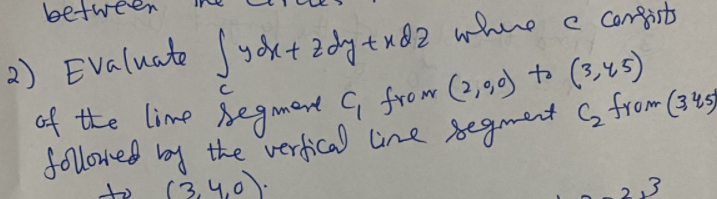 between the circles
2) Evaluate ∫ ydx + zdy + xdz where c consists
c
of the line segment C₁ from (2,0,0) to (3,4,5)
followed by the vertical line segment C₂ from (3 4 5)
to (3,4,0).
2,3